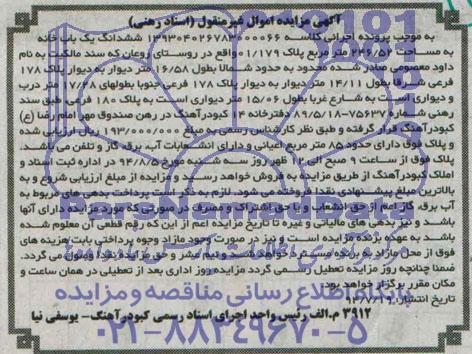 آگهی مزایده اموال غیرمنقول (اسناد رهنی)
به موجب پرونده اجرائی کلاسه ۱۳۹۳۰۴۰۲۶۷۸۳۰۰۰۰۶۶ ششدانگ یک باب خانه
به مساحت ۲۴۶/۵۲ متر مربع پلاک ۱/۱۷۹ واقع در روستای روعان که سند مالکیت به نام
داود معصومی صادر شده محدود به حدود شمالا بطول ۱۶/۵۸ متر دیوار به دیوار پلاک ۱۷۸
فرعی شرقا بطول ۱۴/۱۱ متر دیوار به دیوار پلاک ۱۷۸ فرعی جنوبا بطولهای ۱۷/۴۸ متر درب
و دیواری است به شارع غربا بطول ۱۵/۰۶ متر دیواری است به پلاک ۱۸۰ فرعی، طبق سند
رهنی شماره ۷۵۶۳۷-۸۹/۵/۱۸ دفترخانه کبودرآهنگ در رهن صندوق مهر امام رضا (ع)
کبودرآهنگ قرار گرفته و طبق نظر کارشناس رسمی به مبلغ ۹۳/۰۰۰/۰۰۰ ریال ارزیابی شده
و پلاک فوق دارای حدود ۸۵ متر مربع اعیانی و دارای انشعابات آب، برق، گاز و تلفن می باشد
پلاک فوق از ساعت ۹ صبح الی ۱۲ ظهر روز سه شنبه مورخ ۹۴/۸/۲۶ در اداره ثبت اسناد و
املاک کبودرآهنگ از طریق مزایده به فروش خواهد رسید و مزایده از مبلغ ارزیابی شروع و به
بالاترین مبلغ پیشنهادی نقدا فروخته می شود، لازم به ذکر است پرداخت بدهی های مربوط به
آب، برق، گاز اعم از حق انشعاب و یا حق اشتراک و مصرف در صورتی که مورد مزایده دارای آنها
باشد و نیز بدهی های مالیاتی و غیره تا تاریخ مزایده اعم از این که رقم قطعی آن معلوم شده
باشد به عهده برنده مزایده است و نیز در صورت وجود مازاد وجوه پرداختی بابت هزینه های
فوق از محل مازاد به برنده مسترد خواهد شد و نیم عشر و حق مزایده نقدا وصول می گردد.
ضمنا چنانچه روز مزایده تعطیل رسمی گردد مزایده روز اداری بعد از تعطیلی در همان ساعت و
مکان مقرر برگزار خواهد بود.
تاریخ انتشار: ۹۴/۷/۲۹
۳۹۱۲ م.الف رئیس واحد اجرای اسناد رسمی کبودرآهنگ - یوسفی نیا
ParsNamadData
پایگاه اطلاع رسانی مناقصه و مزایده
۰۲۱-۸۸۳۴۹۶۷۰-۵